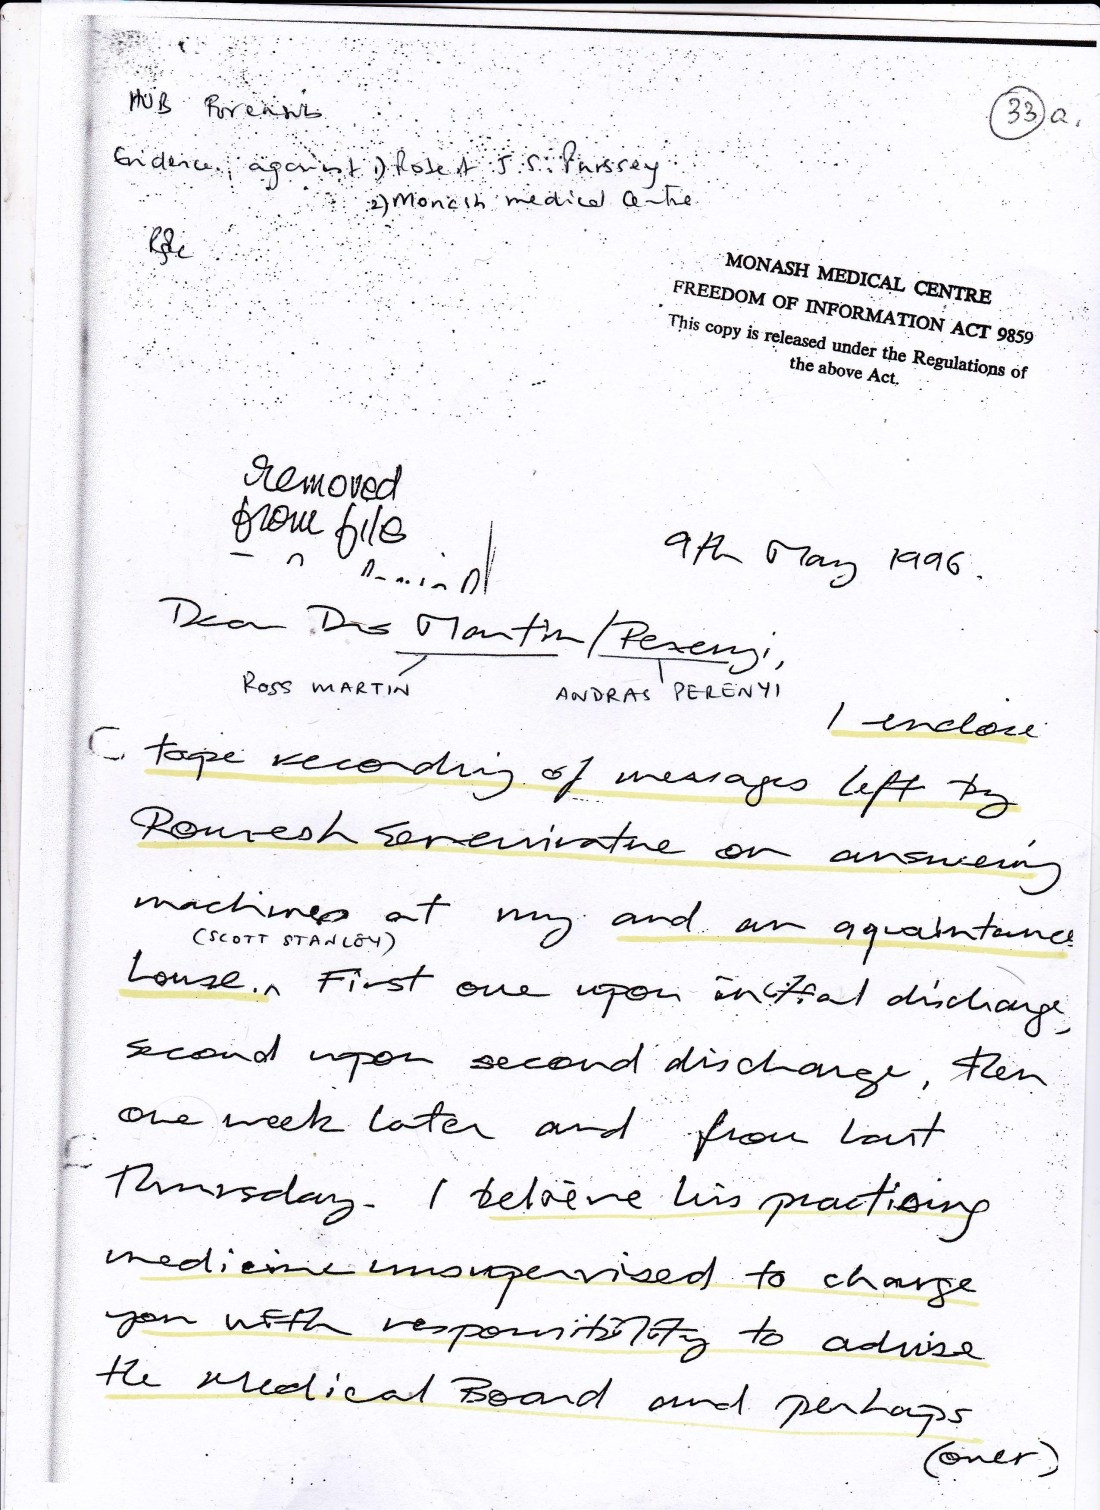 33 a.
HUB Forensis
Evidence against 1) Robert J.S. Purssey
2) Monash medical Centre
MONASH MEDICAL CENTRE
FREEDOM OF INFORMATION ACT 9859
This copy is released under the Regulations of
the above Act.
removed
from file
9th May 1996.
Dear Drs Martin/Perenyi,
ROSS MARTIN ANDRAS PERENYI
I enclose
tape recording of messages left by
Romesh Senewiratne on answering
machines at my and an aquaintance
(SCOTT STANLEY)
house. First one upon initial discharge,
second upon second discharge, then
one week later and from last
Thursday. I believe his practising
medicine unsupervised to charge
you with responsibility to advise
the Medical Board and perhaps
(over)